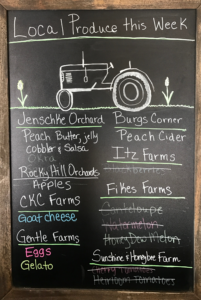 Local Produce this Week
Jenschke Orchard
Peach Butter, jelly
cobbler & Salsa
Okra
Rocky Hill Orchards
Apples
CKC Farms
Goat cheese
Gentle Farms
Eggs
Gelato
Burgs Corner
Peach Cider
Itz Farms
Fikes Farms
Cantaloupe
Watermelon
HoneyDew Melon
Sunshine Honeybee Farm
Heirloom Tomatoes